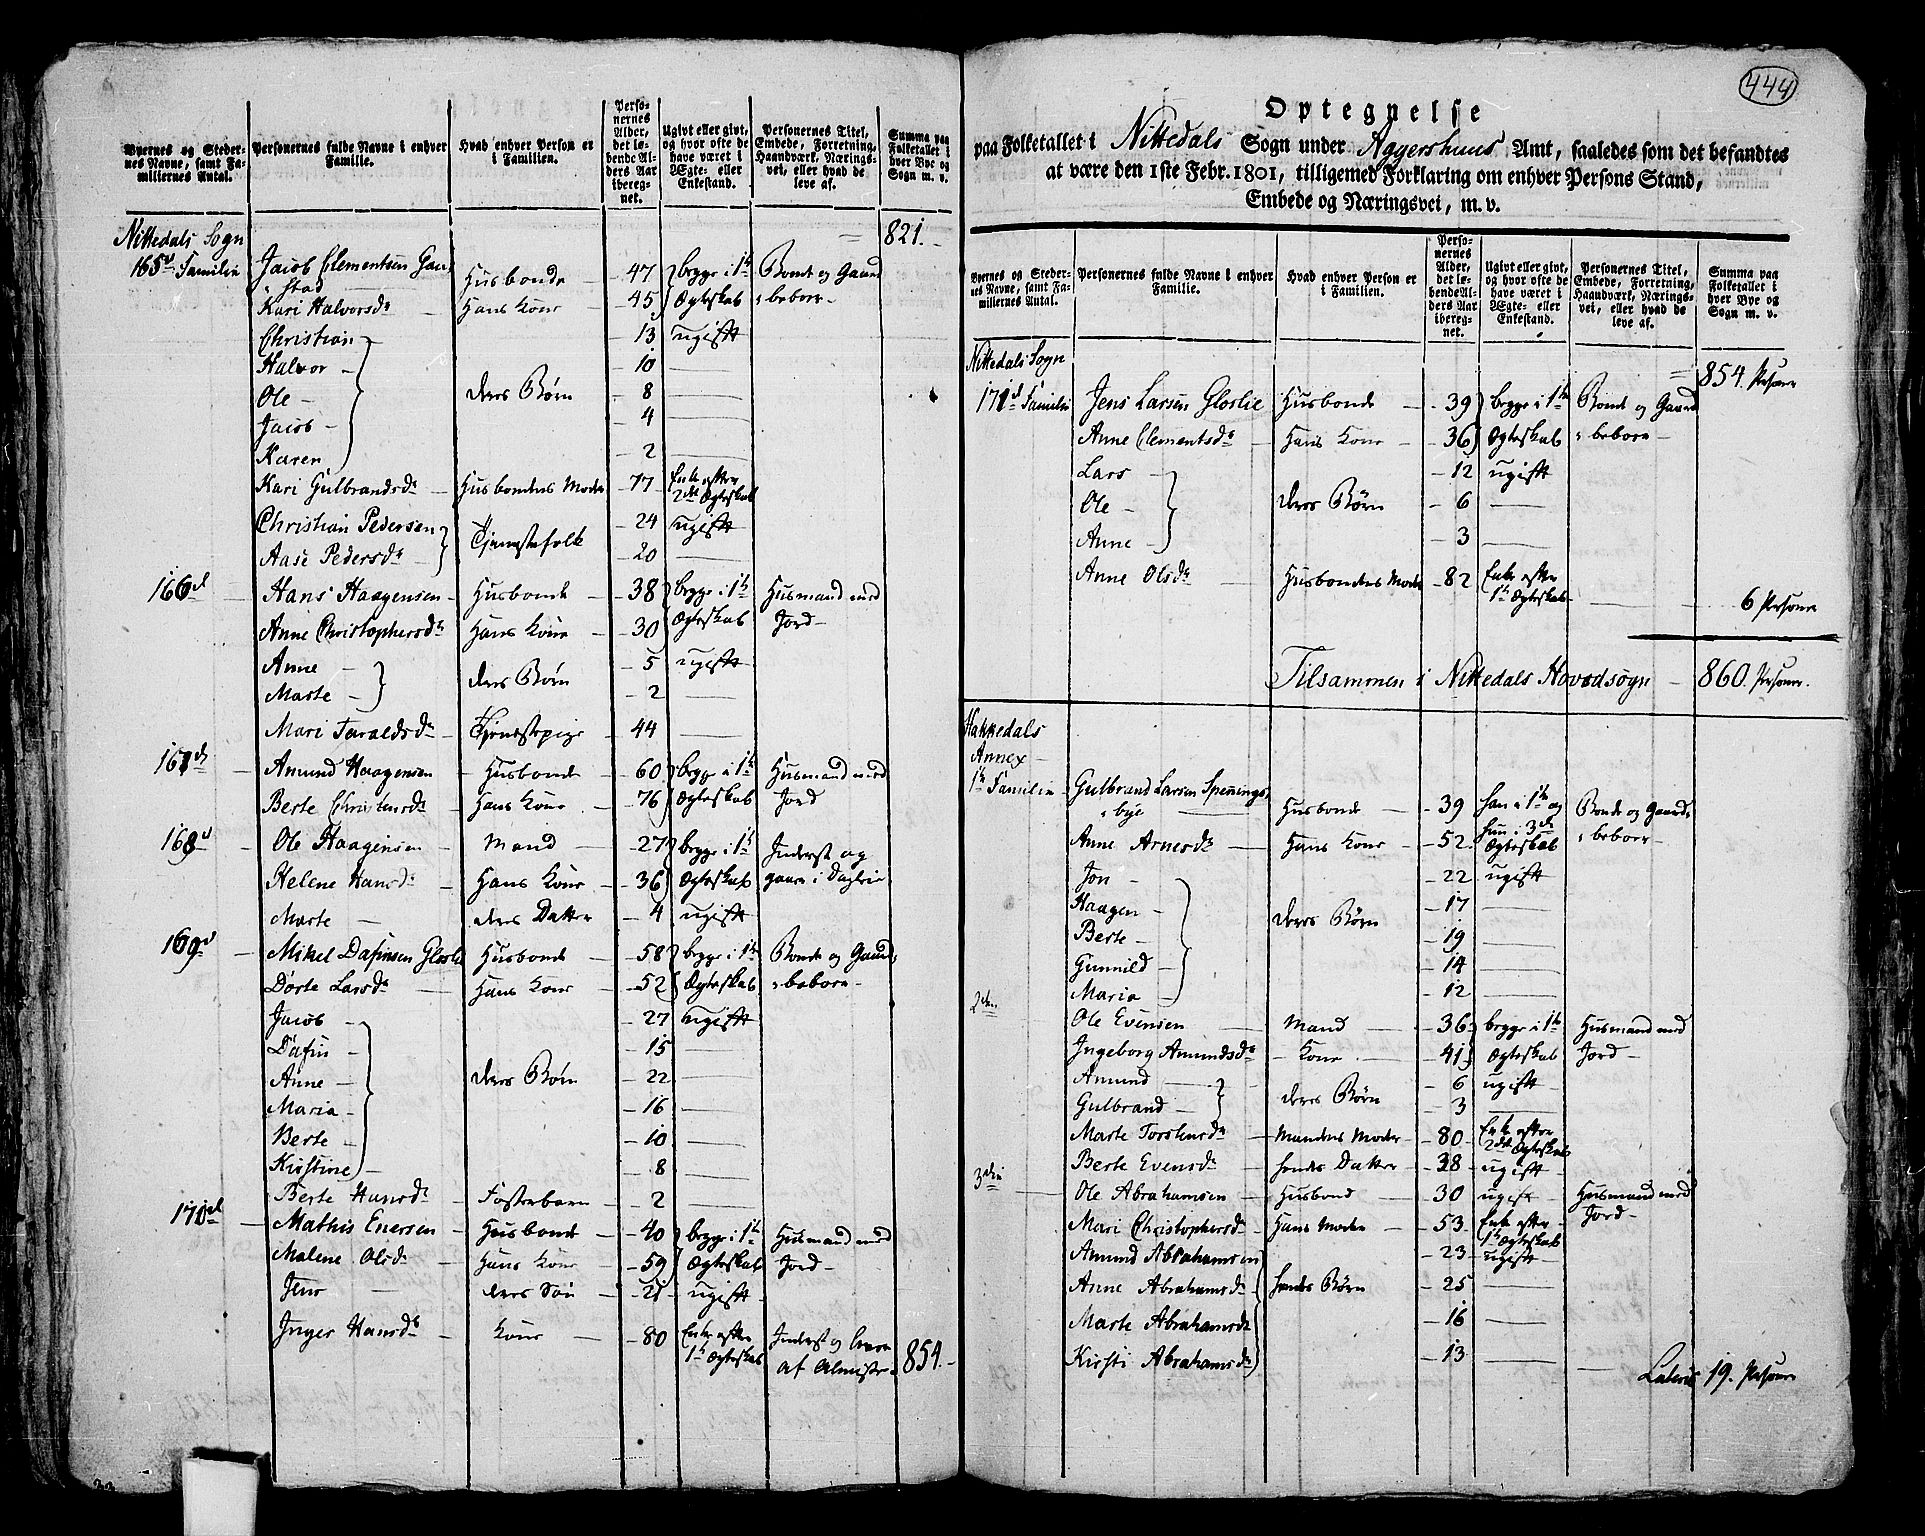 Byernes og Steder-
nes Navne, samt Fa-
miliernes Antal.
Personernes fulde Navne i enhver
Familie.
Hvad enhver Person er
i Familien.
Perso-
nernes
Alder,
det lø-
bende Al-
ders Aar
ibereg-
net.
Ugivt eller givt,
og hvor ofte de
have været i
Ægte- eller
Enkestand.
Personernes Titel,
Embede, Forretning,
Haandværk, Nærings-
vei, eller hvad de
leve af.
Summa paa
Folketallet i
hver Bye og
Sogn m. v.
Nittedals Sogn 821.
165d Familie Jacob Clementsen Gau- Husbonde 47 begge i 1te Bonde og Gaard
stad
Kari Halvorsdr Hans Kone 45 Ægteskab beboer
Christian 13 ugift
Halvor 10
Ole deres Børn 8
Jacob 4
Karen 2
Kari Gulbrandsdr Husbondens Moder 77 Enke efter
2det Ægteskab
Christian Pedersen 24 ugift
Tjenestefolk
Aase Pedersdr 20
166d Hans Haagensen Husbonde 38 begge i 1te Husmand med
Anne Christophersdr Hans Kone 30 Ægteskab Jord
Anne 5 ugift
deres Børn
Marte 2
Mari Taraldsdr Tjenestepige 44
167d Amund Haagensen Husbonde 60 begge i 1te Husmand med
Berte Christensdr Hans Kone 76 Ægteskab Jord
168d Ole Haagensen Mand 27 begge i 1te Inderst og
Helene Hansdr Hans Kone 36 Ægteskab gaaer i Dagleie
Marte deres Datter 4 ugift
169d Mikel Dafinsen Gloslie Husbonde 58 begge i 1te Bonde og Gaard
Dorte Larsdr Hans Kone 52 Ægteskab beboer
Jacob 27 ugift
Dafin 15
Anne deres Børn 22
Maria 16
Berte 10
Kirstine 8
Berte Hansdr Fosterbarn 2
170d Mathis Enersen Husbonde 40 begge i 1te Husmand med
Malene Olsdr Hans Kone 59 Ægteskab Jord
Jens deres Søn 21 ugift
Inger Hansdr Kone 80 Enke efter Inderst og lever
1te Ægteskab af Almisse 854.
444
Optegnelse
paa Folketallet i Nittedals Sogn under Aggershuus Amt, saaledes som det befandtes
at være den 1ste Febr. 1801, tilligemed Forklaring om enhver Persons Stand,
Embede og Næringsvei, m. v.
Byernes og Steder-
nes Navne, samt Fa-
miliernes Antal.
Personernes fulde Navne i enhver
Familie.
Hvad enhver Person er
i Familien.
Perso-
nernes
Alder,
det lø-
bende Al-
ders Aar
ibereg-
net.
Ugivt eller givt,
og hvor ofte de
have været i
Ægte- eller
Enkestand.
Personernes Titel,
Embede, Forretning,
Haandværk, Nærings-
vei, eller hvad de
leve af.
Summa paa
Folketallet i
hver Bye og
Sogn m. v.
Nittedals Sogn 854. Persone
171d Familie Jens Larsen Gloslie Husbonde 39 begge i 1te Bonde og Gaard
Anne Clementsdr Hans Kone 36 Ægteskab beboer
Lars 12 ugift
Ole deres Børn 6
Anne 3
Anne Olsdr Husbondens Moder 82 Enke efter
1te Ægteskab 6 Persone
Tilsammen i Nittedals Hovedsogn 860. Persone.
Hakkedals
Annex
1te Familie Gulbrand Larsen Spennings- Husbonde 39 han i 1te og Bonde og Gaard
bye hun i 3die beboer
Anne Arnesdr Hans Kone 52 Ægteskab
Jon 22 ugift
Haagen 17
Berte deres Børn 19
Gunnild 14
Maria 12
2den Ole Evensen Mand 36 begge i 1te Husmand med
Ingeborg Amundsdr Kone 41 Ægteskab Jord
Amund 6 ugift
deres Børn
Gulbrand 3
Marte Torstensdr Mandens Moder 80 Enke efter
2det Ægteskab
Berte Evensdr hendes Datter 38 ugift
3die Ole Abrahamsen Husbond 30 ugift Husmand med
Mari Christophersdr Hans Moder 53 Enke efter Jord
1te Ægteskab
Amund Abrahamsen 23 ugift
Anne Abrahamsdr hendes Børn 25
Marte Abrahamsdr 16
Kirsti Abrahamsdr 13
Lateris 19. Persone